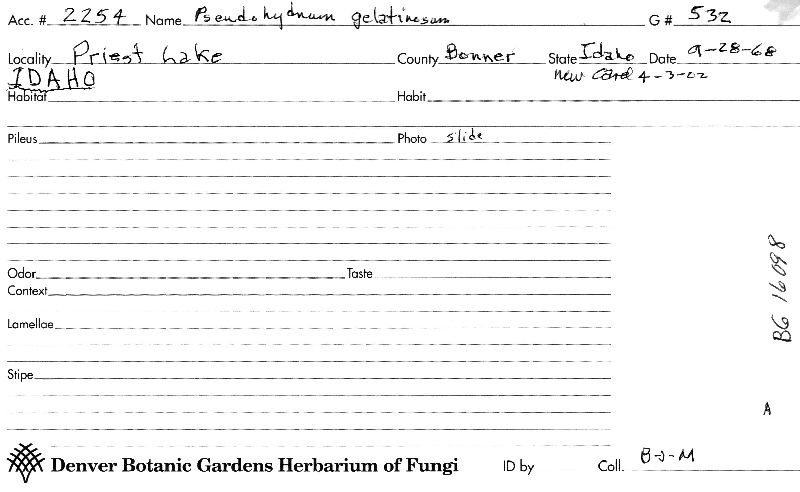 Acc. # 2254 Name Pseudohydnum gelatinosum G # 532
Locality Priest Lake County Bonner State Idaho Date 9-28-68
IDAHO new card 4-3-02
Habitat Habit
Pileus Photo slide
Odor Taste
Context
Lamellae
Stipe
BG 16098
A
Denver Botanic Gardens Herbarium of Fungi ID by Coll. B-J-M